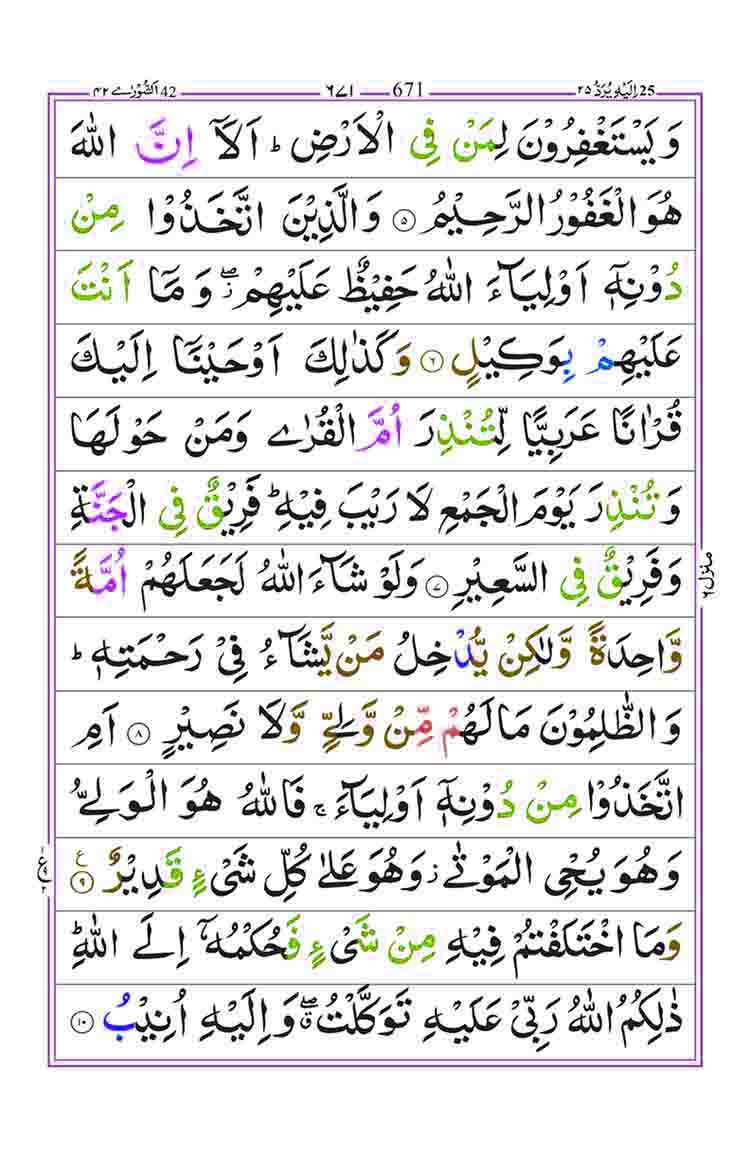 ٤٢ اَلشُّوْرٰے 42 ٦٧١ 671 ٢٥ اِلَیْهِ یُرَدُّ 25
وَ یَسْتَغْفِرُوْنَ لِمَنْ فِی الْاَرْضِ ؕ اَلَاۤ اِنَّ اللّٰهَ
هُوَ الْغَفُوْرُ الرَّحِیْمُ ۵ وَ الَّذِیْنَ اتَّخَذُوْا مِنْ
دُوْنِهٖۤ اَوْلِیَآءَ اللّٰهُ حَفِیْظٌ عَلَیْهِمْ ۖز وَ مَاۤ اَنْتَ
عَلَیْهِمْ بِوَكِیْلٍ ۶ وَ كَذٰلِكَ اَوْحَیْنَاۤ اِلَیْكَ
قُرْاٰنًا عَرَبِیًّا لِّتُنْذِرَ اُمَّ الْقُرٰے وَ مَنْ حَوْلَهَا
وَ تُنْذِرَ یَوْمَ الْجَمْعِ لَا رَیْبَ فِیْهِ ؕ فَرِیْقٌ فِی الْجَنَّةِ
وَ فَرِیْقٌ فِی السَّعِیْرِ ۷ وَ لَوْ شَآءَ اللّٰهُ لَجَعَلَهُمْ اُمَّةً
وَّاحِدَةً وَّلٰكِنْ یُّدْخِلُ مَنْ یَّشَآءُ فِیْ رَحْمَتِهٖ ؕ
وَ الظّٰلِمُوْنَ مَا لَهُمْ مِّنْ وَّلِیٍّ وَّلَا نَصِیْرٍ ۸ اَمِ
اتَّخَذُوْا مِنْ دُوْنِهٖۤ اَوْلِیَآءَ ۚ فَاللّٰهُ هُوَ الْوَلِیُّ
وَ هُوَ یُحْیِ الْمَوْتٰے ز وَ هُوَ عَلٰی كُلِّ شَیْءٍ قَدِیْرٌ ۹ ع
وَ مَا اخْتَلَفْتُمْ فِیْهِ مِنْ شَیْءٍ فَحُكْمُهٗۤ اِلَی اللّٰهِ ؕ
ذٰلِكُمُ اللّٰهُ رَبِّیْ عَلَیْهِ تَوَكَّلْتُ ۖق وَ اِلَیْهِ اُنِیْبُ ۱۰
منزل ٦
ع ٩ ٢